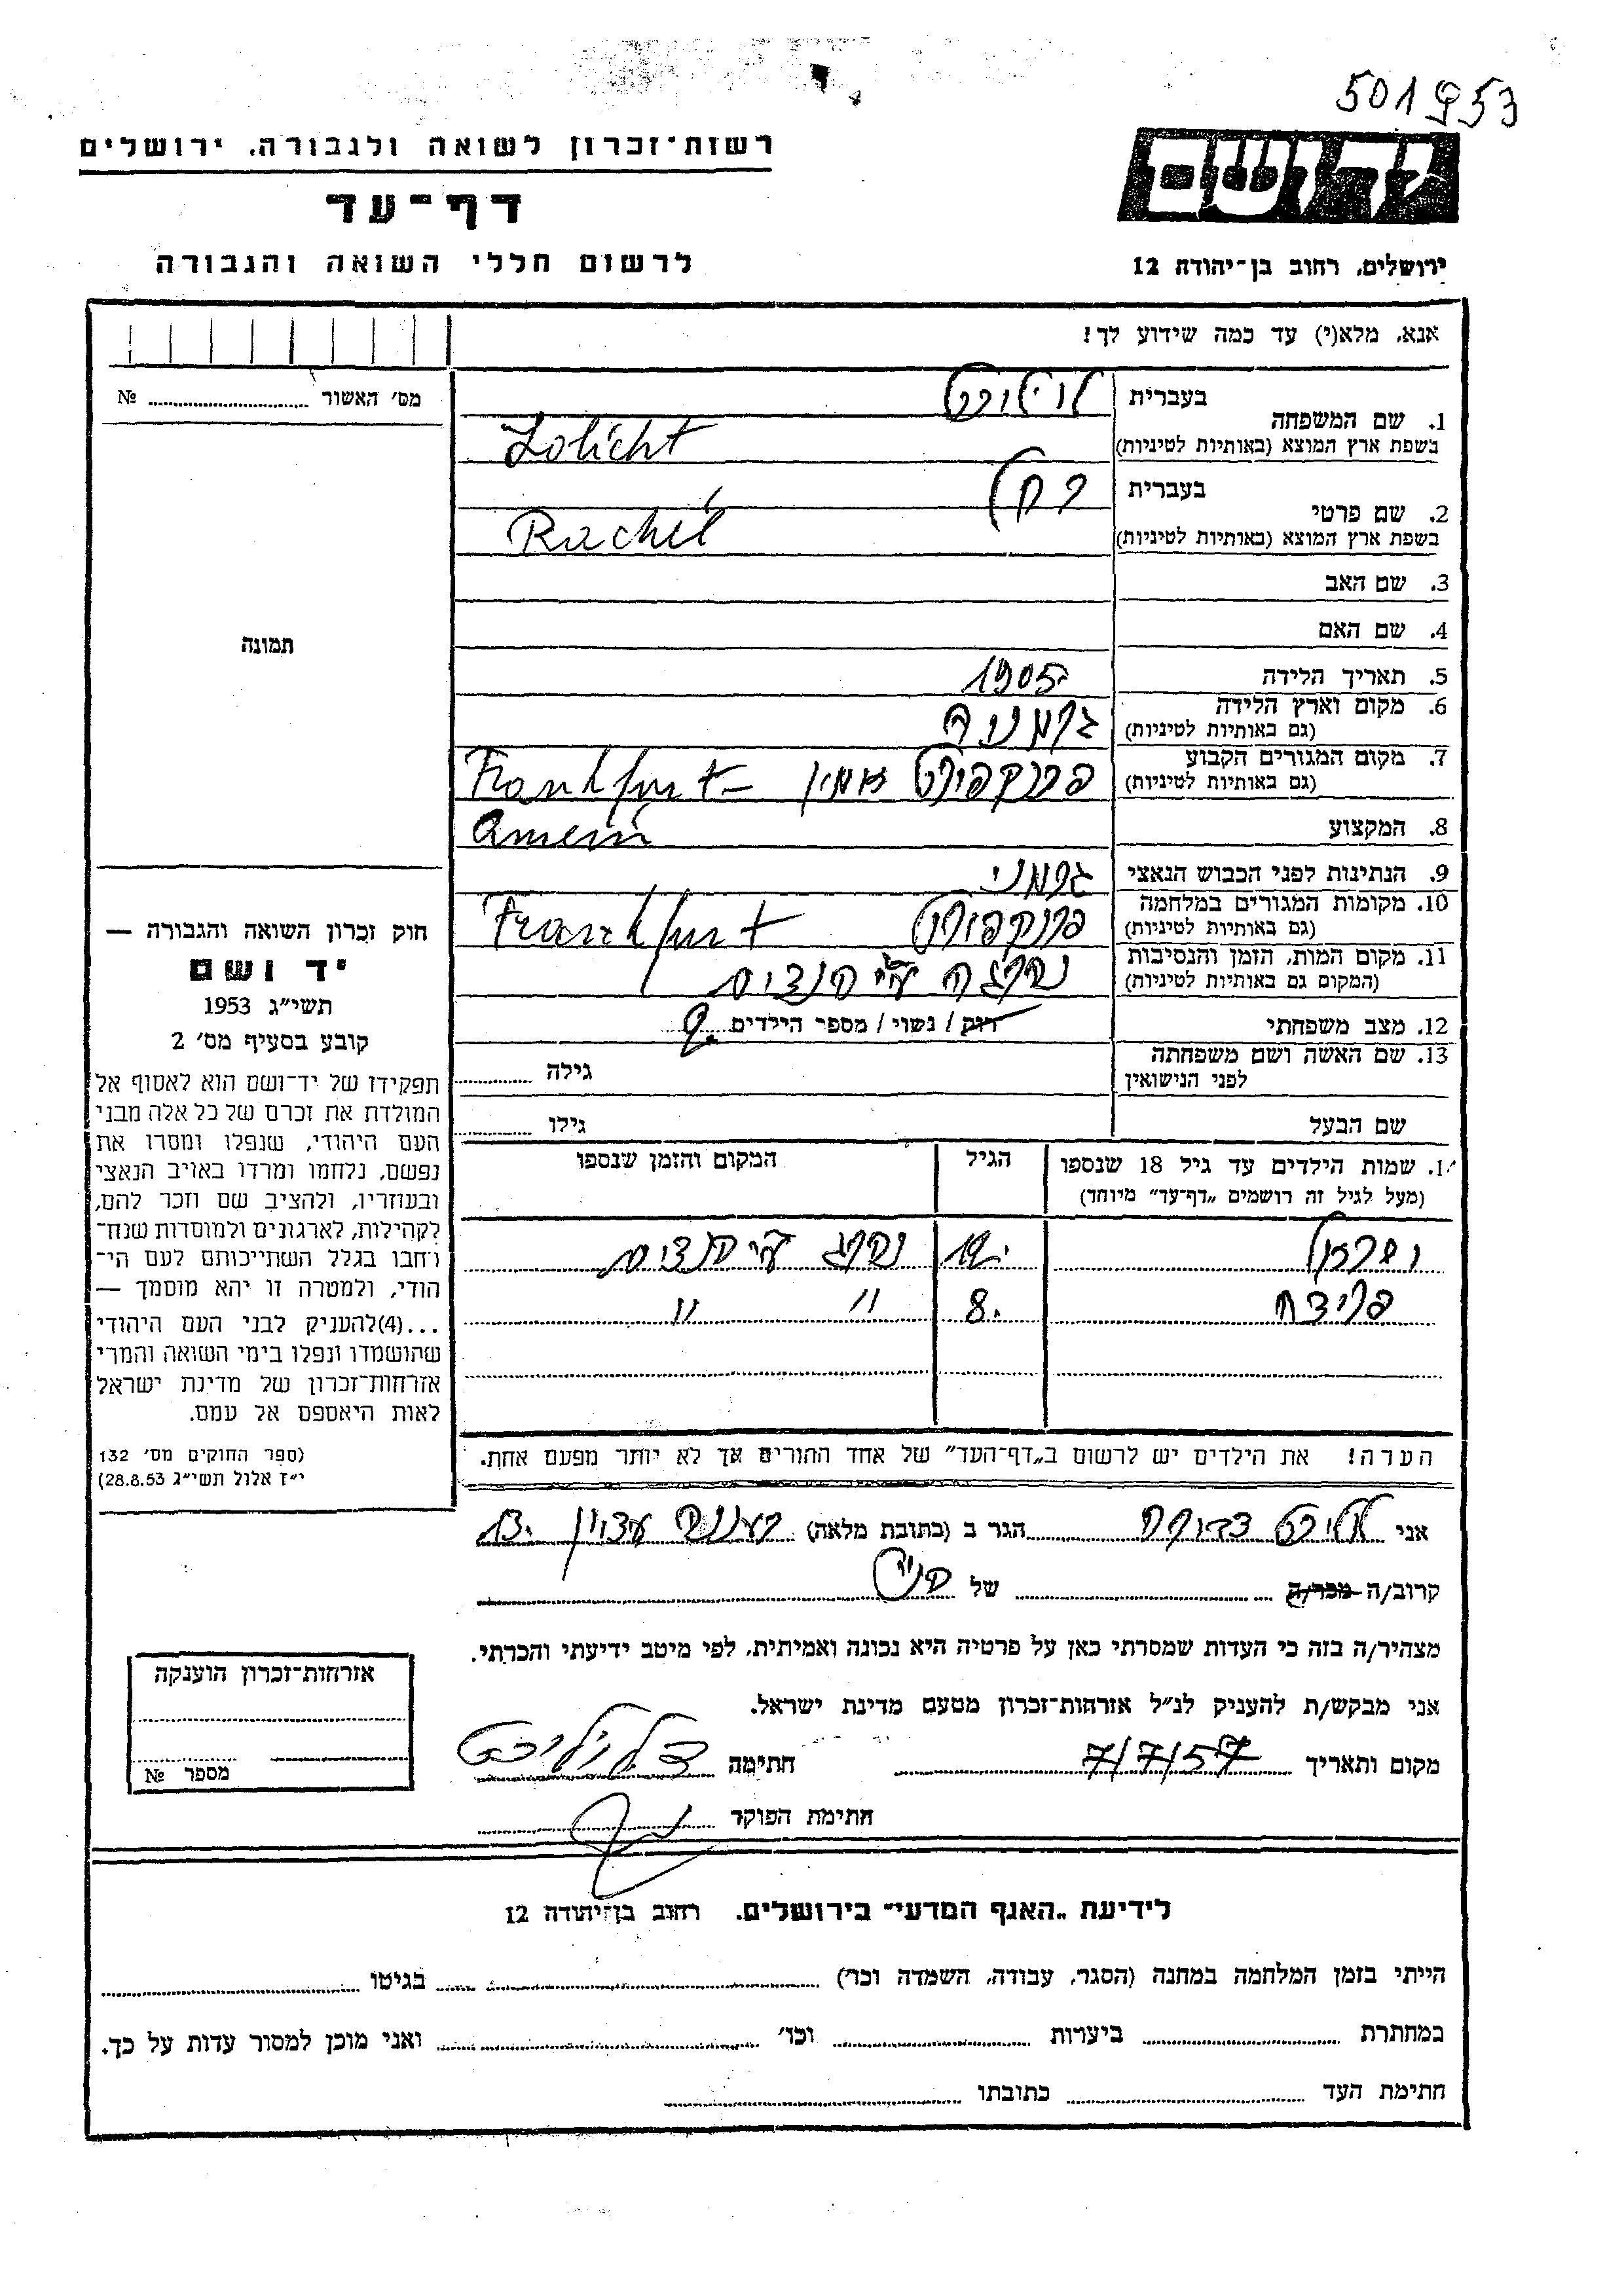 501953
רשות־זכרון לשואה ולגבורה, ירושלים
דף־עד
לרשום חללי השואה והגבורה
ירושלים, רחוב בן־יהודה 12
אנא, מלא(י) עד כמה שידוע לך!
מס׳ האשור № 
1. שם המשפחה
בעברית
בשפת ארץ המוצא (באותיות לטיניות) Lolicht
2. שם פרטי
בעברית רחל
בשפת ארץ המוצא (באותיות לטיניות) Rachel
3. שם האב
4. שם האם
תמונה
5. תאריך הלידה 1905
6. מקום וארץ הלידה גרמניה
(גם באותיות לטיניות)
7. מקום המגורים הקבוע פרנקפורט Frankfurt-
(גם באותיות לטיניות)
8. המקצוע Amein
9. הנתינות לפני הכבוש הנאצי גרמני
10. מקומות המגורים במלחמה פרנקפורט Frankfurt
(גם באותיות לטיניות)
11. מקום המות, הזמן והנסיבות נהרגה ע״י הנצים
(המקום גם באותיות לטיניות)
12. מצב משפחתי רוק / נשוי / מספר הילדים 2
13. שם האשה ושם משפחתה
לפני הנישואין גילה
שם הבעל גילו
חוק זכרון השואה והגבורה —
יד ושם
תשי״ג 1953
קובע בסעיף מס׳ 2
תפקידו של יד־ושם הוא לאסוף אל
המולדת את זכרם של כל אלה מבני
העם היהודי, שנפלו ומסרו את
נפשם, נלחמו ומרדו באויב הנאצי
ובעוזריו, ולהציב שם וזכר להם,
לקהילות, לארגונים ולמוסדות שנח־
רחבו בגלל השתייכותם לעם הי־
הודי, ולמטרה זו יהא מוסמך —
...(4)להעניק לבני העם היהודי
שהושמדו ונפלו בימי השואה והמרי
אזרחות־זכרון של מדינת ישראל
לאות היאספם אל עמם.
(ספר החוקים מס׳ 132
י״ז אלול תשי״ג 28.8.53)
שמות הילדים עד גיל 18 שנספו הגיל המקום והזמן שנספו
(מעל לגיל זה רושמים „דף־עד״ מיוחד)
ישראל 12 נהרג ע״י הנצים
8 〃 〃
הערה! את הילדים יש לרשום ב„דף־העד״ של אחד ההורים אך לא יותר מפעם אחת.
אני הגר ב (כתובת מלאה) רעננה 13
קרוב/ה מכר/ה של
מצהיר/ה בזה כי העדות שמסרתי כאן על פרטיה היא נכונה ואמיתית, לפי מיטב ידיעתי והכרתי.
אני מבקש/ת להעניק לנ״ל אזרחות־זכרון מטעם מדינת ישראל.
מקום ותאריך 7/7/57 חתימה
חתימת הפוקד
אזרחות־זכרון הוענקה
מספר №
לידיעת „האגף המדעי״ בירושלים, רחוב בן־יהודה 12
הייתי בזמן המלחמה במחנה (הסגר, עבודה, השמדה וכו׳) בגיטו
במחתרת ביערות וכו׳ ואני מוכן למסור עדות על כך.
חתימת העד כתובתו